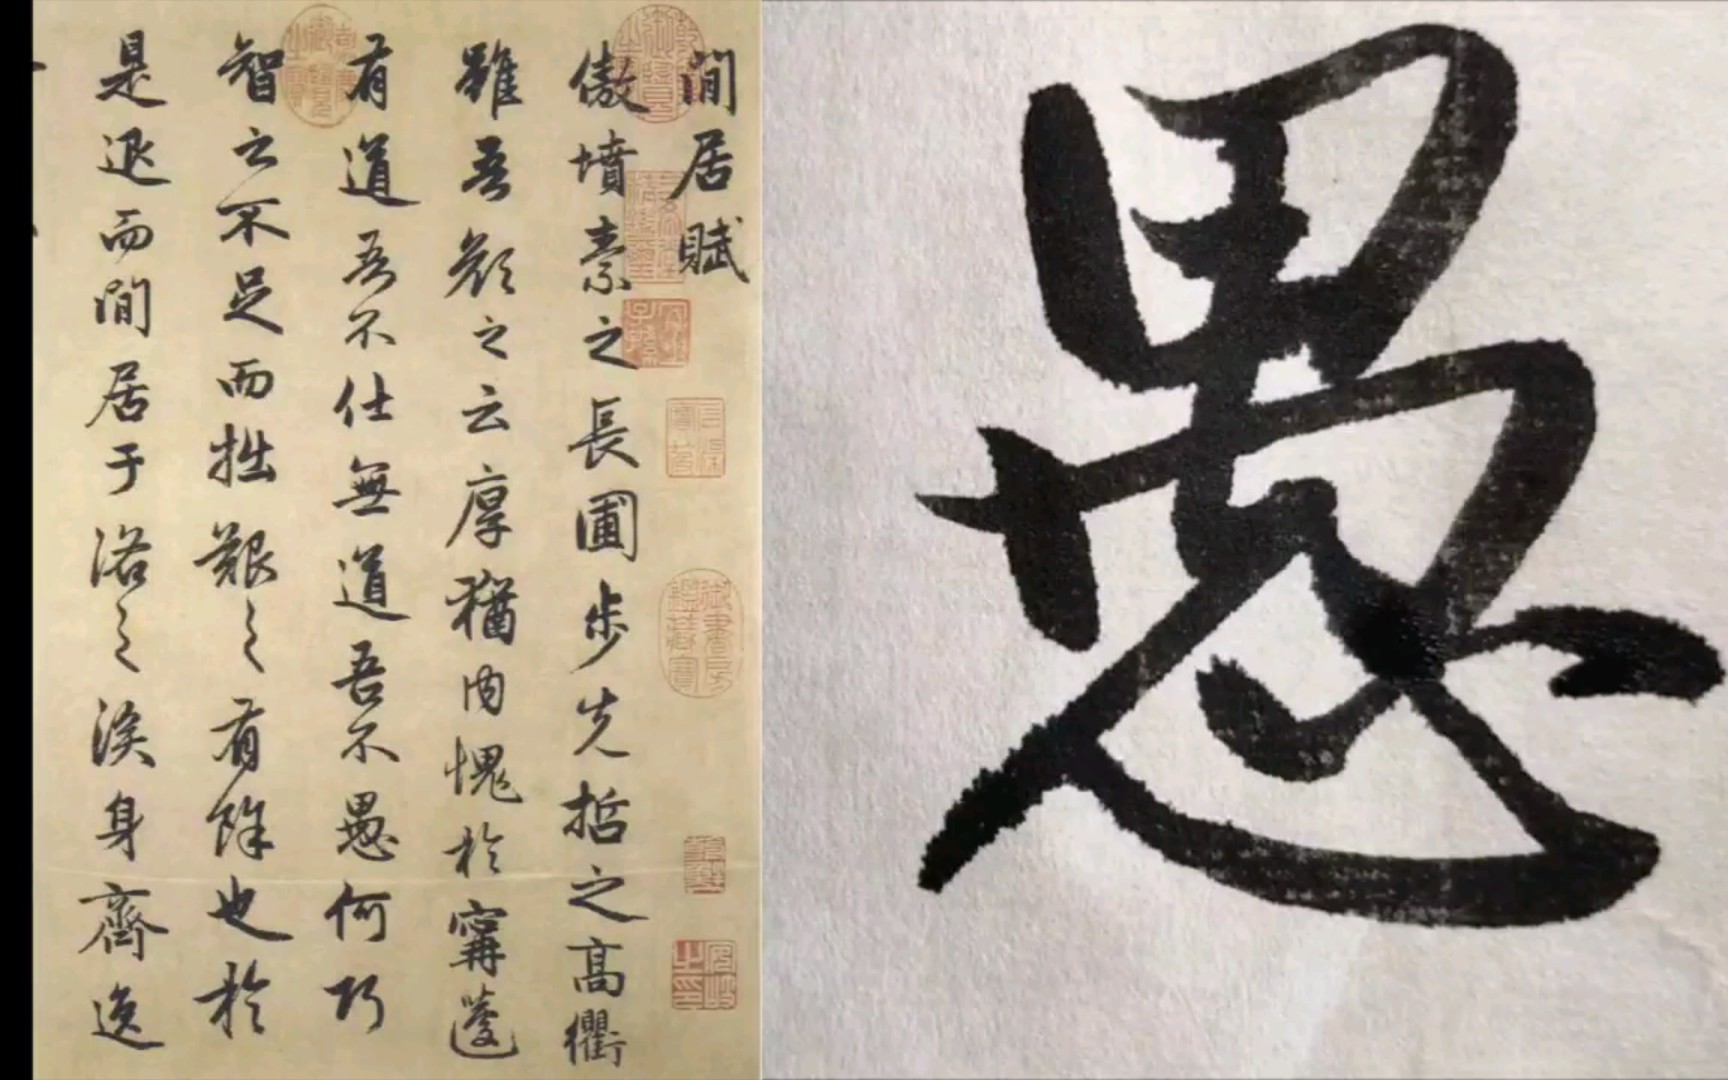 閒居賦
傲墳素之長圃步先哲之高衢
雖吾顏之云厚猶內愧於寗蘧
有道吾不仕無道吾不愚何巧
智之不足而拙艱之有餘也於
是退而閒居于洛之涘身齊逸
愚